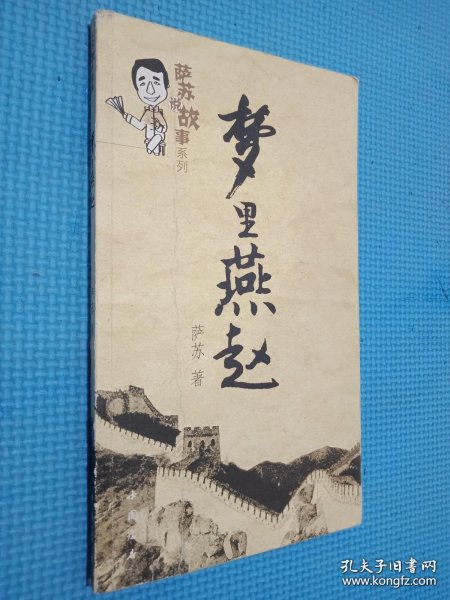 萨苏说故事系列
梦里燕赵
萨苏 著
孔夫子旧书网
www.kongfz.com